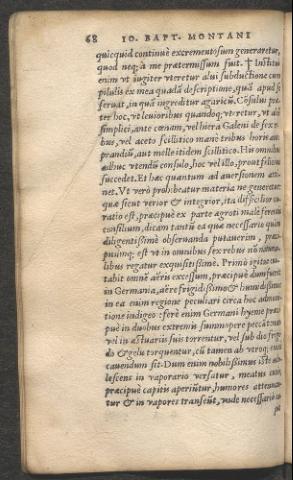 68 IO. BAPT. MONTANI
quicquid continuè excrementosum generaretur,
quod neq; à me prætermissum fuit. † Institui
enim ut iugiter uteretur alui subductione cum
pilulis ex mea quadã descriptione, quã apud se
seruat, in quã ingreditur agaricũ. Cõsului præ
ter hoc, ut leuioribus quandoq; uteretur, ut aloë
simplici, ante cœnam, uel hiera Galeni de sex re
bus, uel aceto scillitico manè tribus horis ante
prandiũ, aut melle itidem scillitico. His omnibus
adhuc utendũ consulo, hoc uel illo, prout foelicius
succedet. Et hæc quantum ad auersionem atti
net. Vt verò prohibeatur materia ne generetur
quæ sicut verior & integrior, ita difficilior cu
ratio est, præcipuè ex parte ægroti malè ferentis
consilium, dicam tantũ ea quæ necessariò quàm
diligentissimè obseruanda putauerim, præci
puumq́; est ut in omnibus sex rebus nõ natura
libus regatur exquisitissimè. Primò igitur eui
tabit omnẽ aëris excessum, præcipuè dum fuerit
in Germania, aëre frigidissimo & humidissimo
in ea enim regione peculiari circa hoc admoni
tione indiget: ferè enim Germani hyeme præci
puè in duobus extremis summopere peccãt
vel in æstuariis suis torrentur, vel sub dio frigi
do & gelu torquentur, cũ tamen ab vtroq; esset
cauendum sit. Dum enim nobilissimus iste ado
lescens in vaporario versatur, meatus omnes
præcipuè capitis aperiũtur, humores attenuan
tur & in vapores transeũt, unde necessariò